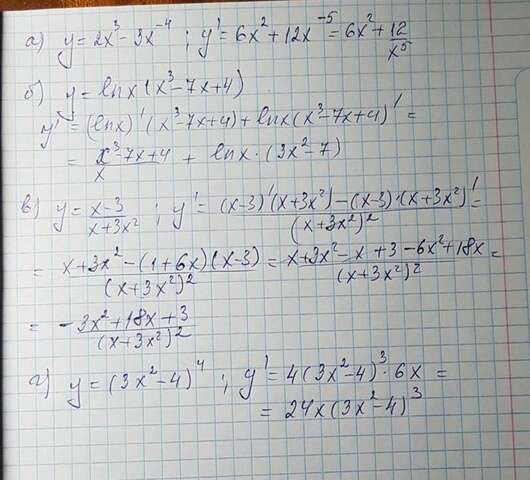 а) y = 2x³ - 3x⁻⁴ ; y' = 6x² + 12x⁻⁵ = 6x² + 12/x⁵
б) y = lnx (x³ - 7x + 4)
y' = (lnx)' (x³ - 7x + 4) + lnx (x³ - 7x + 4)' =
= (x³ - 7x + 4)/x + lnx · (3x² - 7)
в) y = (x-3)/(x+3x²) ; y' = ((x-3)'(x+3x²) - (x-3)·(x+3x²)')/(x+3x²)² =
= (x+3x² - (1+6x)(x-3))/(x+3x²)² = (x+3x² - x + 3 - 6x² + 18x)/(x+3x²)² =
= (-3x² + 18x + 3)/(x+3x²)²
г) y = (3x² - 4)⁴ ; y' = 4(3x² - 4)³ · 6x =
= 24x(3x² - 4)³